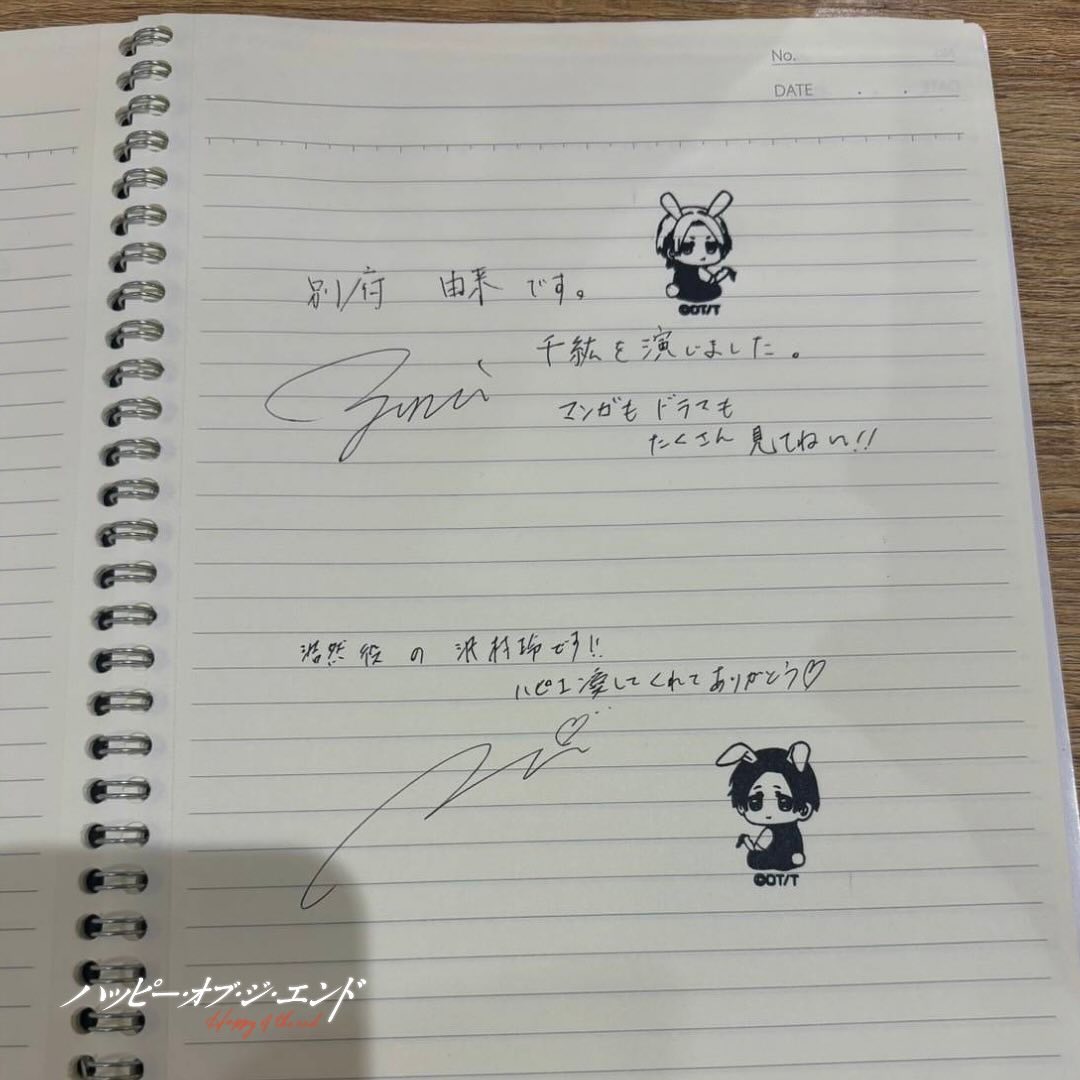 No.
DATE . .
別府 由来 です。
©OT/T
千紘を演じました。
マンガもドラマも
たくさん見てねい!!
浩然役の沢村玲です!!
ハピエン愛してくれてありがとう♡
©OT/T
ハッピー・オブ・ジ・エンド
Happy of the end